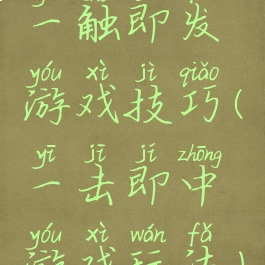 一触即发
yóu xì jì qiǎo
游戏技巧(
yī jī jí zhōng
一击即中
yóu xì wán fǎ
游戏玩法)